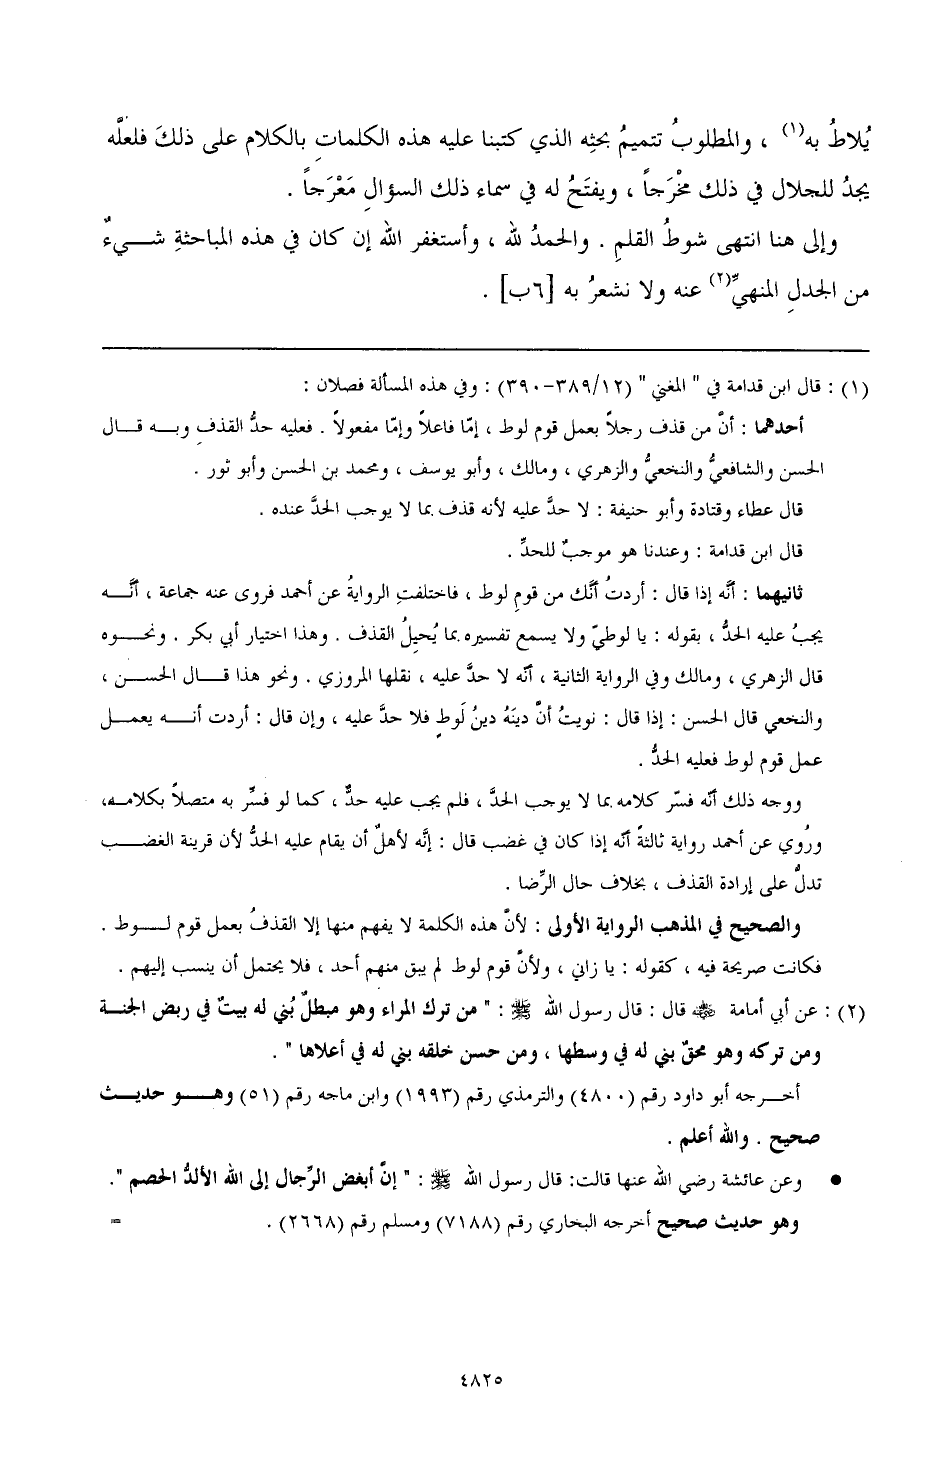 يُلاطُ به(١) ، والمطلوبُ تتميمُ بحثِه الذي كتبنا عليه هذه الكلماتِ بالكلام على ذلكَ فلعلَّه
يجدُ للجلال في ذلك مخْرَجاً ، ويفتَحُ له في سماء ذلك السؤالِ مَعْرَجاً .
وإلى هنا انتهى شوطُ القلمِ . والحمدُ لله ، وأستغفر الله إن كان في هذه المباحثةِ شـــيءٌ
من الجدلِ المنهيِّ(٢) عنه ولا نشعرُ به [٦ب] .
(١) : قال ابن قدامة في " المغني " (١٢/٣٨٩-٣٩٠) : وفي هذه المسألة فصلان :
أحدهما : أنَّ من قذف رجلاً بعمل قوم لوط ، إمّا فاعلاً وإمّا مفعولاً . فعليه حدُّ القذفِ وبـــه قـــال
الحسن والشافعيُّ والنخعيُّ والزهري ، ومالك ، وأبو يوسف ، ومحمد بن الحسن وأبو ثور .
قال عطاء وقتادة وأبو حنيفة : لا حدَّ عليه لأنه قذف بما لا يوجب الحدَّ عنده .
قال ابن قدامة : وعندنا هو موجبٌ للحدِّ .
ثانيهما : أنَّه إذا قال : أردتُ أنَّك من قومِ لوط ، فاختلفتِ الروايةُ عن أحمد فروى عنه جماعة ، أنَّـــه
يجبُ عليه الحدُّ ، بقوله : يا لوطيّ ولا يسمع تفسيره بما يُحيلُ القذف . وهذا اختيار أبي بكر . ونحـــوه
قال الزهري ، ومالك وفي الرواية الثانية ، أنَّه لا حدَّ عليه ، نقلها المروزي . ونحو هذا قـــال الحســـن ،
والنخعي قال الحسن : إذا قال : نويتُ أنَّ دينَهُ دينُ لَوطٍ فلا حدَّ عليه ، وإن قال : أردت أنـــه يعمـــل
عمل قوم لوط فعليه الحدُّ .
ووجه ذلك أنَّه فسّر كلامه بما لا يوجب الحدَّ ، فلم يجب عليه حدٌّ ، كما لو فسَّر به متصلاً بكلامـــه،
ورُوي عن أحمد رواية ثالثةً أنَّه إذا كان في غضب قال : إنَّه لأهلٌ أن يقام عليه الحدُّ لأن قرينة الغضـــب
تدلُّ على إرادة القذف ، بخلاف حال الرِّضا .
والصحيح في المذهب الرواية الأولى : لأنَّ هذه الكلمة لا يفهم منها إلا القذفُ بعمل قوم لـــوط .
فكانت صريحة فيه ، كقوله : يا زاني ، ولأنَّ قوم لوط لم يبق منهم أحد ، فلا يحتمل أن ينسب إليهم .
(٢) : عن أبي أمامة رضي الله عنه قال : قال رسول الله ﷺ : " من ترك المراء وهو مبطلٌ بُني له بيتٌ في ربض الجنـــة
ومن تركه وهو محقٌ بني له في وسطها ، ومن حسن خلقه بني له في أعلاها " .
أخـــرجه أبو داود رقم (٤٨٠٠) والترمذي رقم (١٩٩٣) وابن ماجه رقم (٥١) وهـــو حديـــث
صحيح . والله أعلم .
● وعن عائشة رضي الله عنها قالت: قال رسول الله ﷺ : " إنَّ أبغض الرِّجال إلى الله الألدُّ الخصم ".
وهو حديث صحيح أخرجه البخاري رقم (٧١٨٨) ومسلم رقم (٢٦٦٨) . =
٤٨٢٥